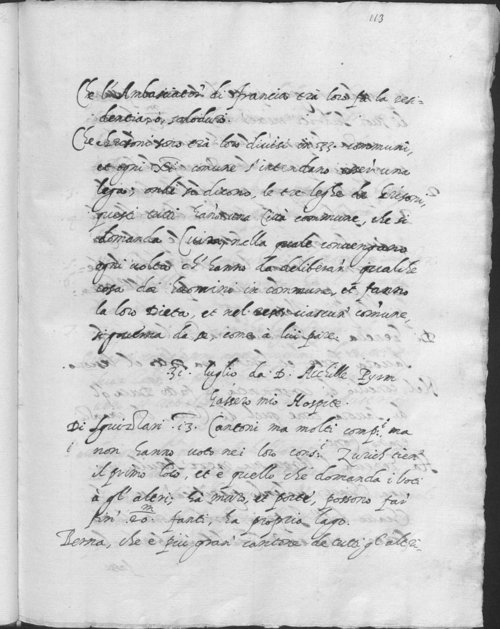 113
Che l'Ambasciator di Francia trà loro fa la resi-
denza in soloduro.
Che i Grisoni sono trà loro divisi in 33. communi,
et ogni di comune s'intendano una
lega; onde si dicono le tre leghe de Grisoni,
questi tutti hanno una Città commune, che si
domanda Cuira, nella quale convengono
ogni volta ch' hanno da deliberar qualche
cosa dai in commune, et fanno
la loro Dieta, et nel ciascun comune
si governa da se, come à lui pare.
31. luglio da D. Acchille
mio Hospite.
Di Sguizzari .13. Cantoni ma molti ma
non hanno voto nei loro Zurich tien
il primo loco, et è quello che domanda i voti
à gl' altri, hà muro, et porte, possono far
fin' 20 fanti, ha proprio lago.
Berna, che è più gran' cantone de tutti gl' altri-